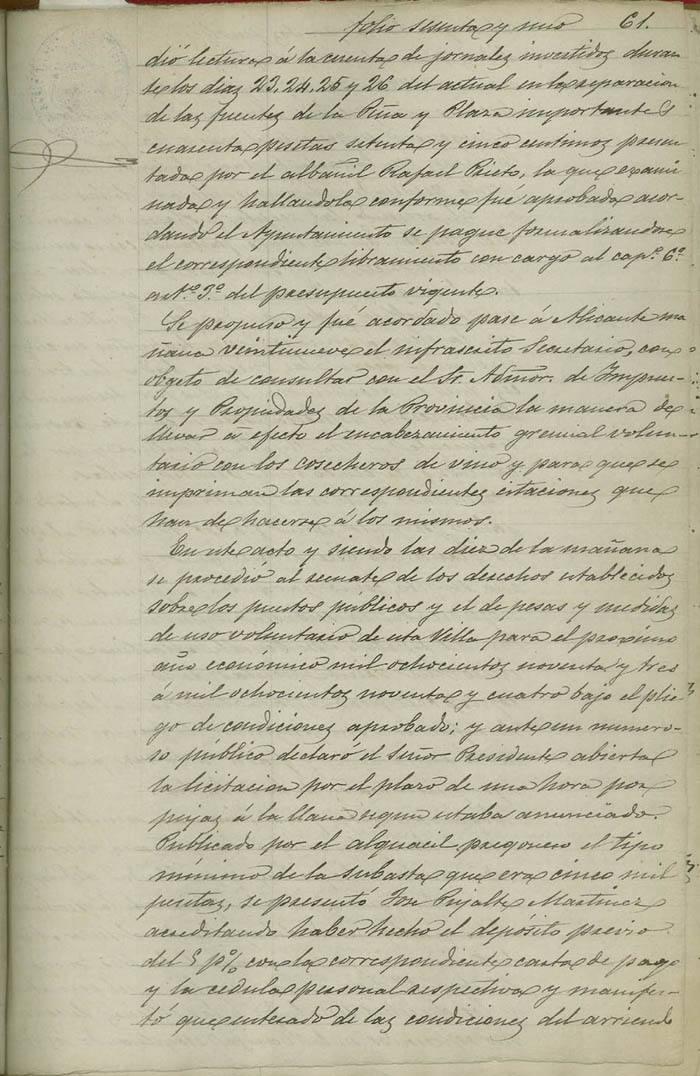 folio sesenta y uno 61.
dió lectura á la cuenta de jornales invertidos duran-
te los dias 23, 24, 25 y 26 del actual en la reparacion
de las fuentes de la Peña y Plaza importante
cuarenta pesetas setenta y cinco centimos presen-
tada por el albañil Rafael Prieto, la que exami-
nada y hallandola conforme fué aprobada acor-
dando el Ayuntamiento se pague formalizandose
el correspondiente libramiento con cargo al capº. 6º.
artº. 3º del presupuesto vigente.
Se propuso y fué acordado pase á Alicante ma-
ñana veintinueve el infrascrito Secretario, con
objeto de consultar con el Sr. Admor. de Impues-
tos y Propiedades de la Provincia la manera de
llevar á efecto el encabezamiento gremial volun-
tario con los cosecheros de vino y para que se
impriman las correspondientes citaciones que
han de hacerse á los mismos.
En este acto y siendo las diez de la mañana
se procedió al remate de los derechos establecidos
sobre los puestos públicos y el de pesas y medidas
de uso voluntario de esta Villa para el proximo
año económico mil ochocientos noventa y tres
á mil ochocientos noventa y cuatro bajo el plie-
go de condiciones aprobado; y ante un numero-
so público declaró el Señor Presidente abierta
la licitacion por el plazo de una hora por
pujas á la llana segun estaba anunciado.
Publicado por el alguacil pregonero el tipo
mínimo de la subasta que era cinco mil
pesetas, se presentó José Rizalt Martinez
acreditando haber hecho el depósito previo
del 5 p% con la correspondiente carta de pago
y la cédula personal respectiva y manifes-
tó que enterado de las condiciones del arriendo